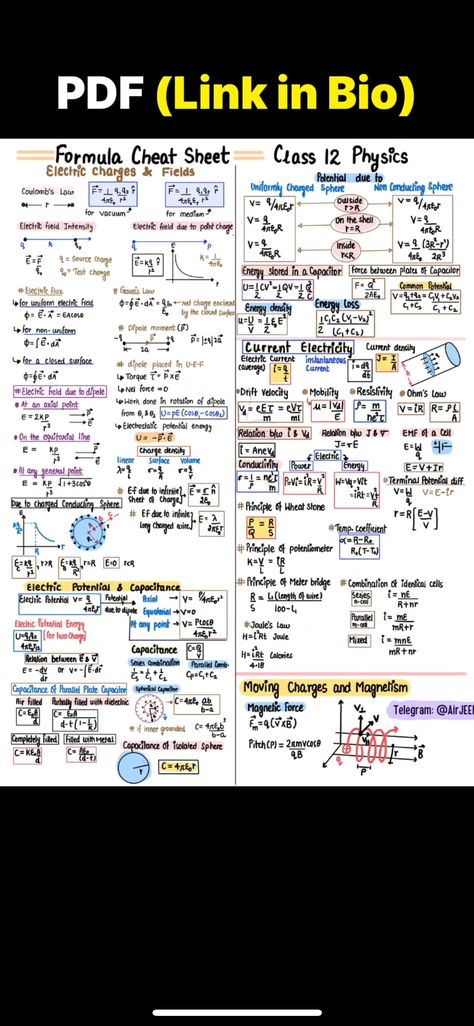 PDF (Link in Bio)
Formula Cheat Sheet
Electric Charges & Fields
Coulomb's Law
F = 1/4πε₀ q₁q₂/r² r̂
for vacuum
for medium
Electric field Intensity
q = Source charge
q₀ = Test charge
Electric field due to point charge
E = kq/r² r̂
k = 1/4πε₀
# Electric flux
↳ for uniform electric field
Φ = E⃗ · A⃗ = EA cosθ
↳ for non-uniform
Φ = ∫E⃗ · dA⃗
↳ for a closed surface
Φ = ∮E⃗ · dA⃗
# Gauss's Law
Net charge enclosed
by the closed surface
# Dipole moment (P⃗)
# dipole placed in U.E.F
↳ Torque τ⃗ = P⃗ × E⃗
↳ Net force = 0
↳ Work done in rotation of dipole
from θ₁ & θ₂ U = PE (cosθ₁ - cosθ₂)
↳ Electrostatic potential energy
U = -P⃗ · E⃗
Electric field due to dipole
At an axial point
E = 2KP/r³
On the equitorial line
E = KP/r³
At any general point
E = KP/r³ √1+3cos²θ
Charge density
linear surface volume
λ = q/l σ = q/A ρ = q/V
# Ef due to infinite sheet of charge
# Ef due to infinite long charged wire
E = λ/2πε₀r
Due to charged Conducting Sphere
r>R
r=R
E=0 r<R
Electric Potential & Capacitance
Electric Potential V = q/4πε₀r
Potential due to dipole
Axial → V = P/4πε₀r²
Equatorial → V=0
At any point → V = Pcosθ/4πε₀r²
Electric Potential Energy
U = q₁q₂/4πε₀r₁₂ (for two charge)
Relation between E⃗ & V⃗
E = -dV/dr or V = -∫E⃗·dr⃗
Capacitance C = Q/V
Series Combination Parallel Comb-
1/Cs = 1/C₁ + 1/C₂ Cp = C₁+C₂
Capacitance of Parallel Plate Capacitor
Air filled
C = ε₀A/d
Partially filled with dielectric
Completely filled
C = Kε₀A/d
Filled with Metal
C = Aε₀/(d-t)
Spherical Capacitor
C = 4πε₀ ab/b-a
# if inner grounded
C = 4πε₀b²/b-a
Capacitance of Isolated Sphere
C = 4πε₀r
Class 12 Physics
Potential due to
Uniformly Charged Sphere
Non Conducting Sphere
V = q/4πε₀r
Outside r>R
V = q/4πε₀r
V = q/4πε₀R
On the shell r=R
V = q/4πε₀R
V = q/4πε₀R
Inside r<R
Energy stored in a Capacitor
U = 1/2 CV² = 1/2 QV = 1/2 Q²/C
Force between plates of Capacitor
F = Q²/2Aε₀
Common Potential
V = q₁+q₂/C₁+C₂ = C₁V₁+C₂V₂/C₁+C₂
Energy density
u = U/V = 1/2 ε₀E²
Energy Loss
1/2 C₁C₂(V₁-V₂)²/(C₁+C₂)
Current Electricity
Electric Current (average) i = q/t
instantaneous Current i = dq/dt
Current density
J = I/A
Drift Velocity
Vd = eEτ/m = eVτ/ml
Mobility
μ = |Vd|/E
Resistivity
ρ = m/ne²τ
Ohm's Law
V = iR R = ρ L/A
Relation b/w i & Vd
i = AneVd
Relation b/w J & V
J = σE
EMF of a Cell
E = V+Ir
Conductivity
Electric
Power
P = Vi = i²R = V²/R
Energy
Terminal Potential diff.
V = W/q V = E-Ir
r = R[E-V/V]
# Principle of Wheat stone
P/Q = R/S
# Temp. coefficient
α = R-R₀/R₀(T-T₀)
# Principle of potentiometer
# Principle of Meter bridge
R/S = L₁(length of wire)/100-L₁
# Joule's Law
H = i²Rt Joule
H = i²Rt/4.18 Calories
# Combination of identical cells
Series n-cell i = nE/R+nr
Parallel m-cell i = mE/mR+r
Mixed i = mnE/mR+nr
Moving Charges and Magnetism
Magnetic Force
Fm = q(V⃗×B⃗)
Pitch(P) = 2πmvcosθ/qB
Telegram: @AirJEE